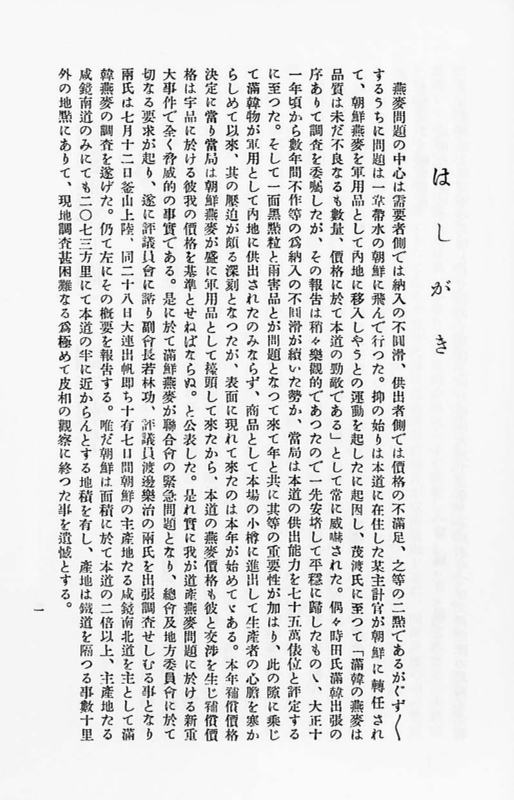 はしがき
燕麥問題の中心は需要者側では納入の不圓滑、供出者側では價格の不滿足、之等の二點であるがぐず〱
するうちに問題は一葦帶水の朝鮮に飛んで行つた。抑の始りは本道に在住した某主計官が朝鮮に轉任され
て、朝鮮燕麥を軍用品として內地に移入しやうとの運動を起したに起因し、茂渡氏に至つて「滿韓の燕麥は
品質は未だ不良なるも數量、價格に於て本道の勁敵である」として常に威嚇された。偶々時田氏滿韓出張の
序ありて調査を委囑したが、その報告は稍々樂觀的であつたので一先安堵して平穩に歸したものゝ、大正十
一年頃から數年間不作等の爲納入の不圓滑が續いた勢か、當局は本道の供出能力を七十五萬俵位と評定する
に至つた。そして一面黑點粒と雨害品とが問題となつて來て年と共に其等の重要性が加はり、此の隙に乘じ
て滿韓物が軍用として內地に供出されたのみならず、商品として本場の小樽に進出して生產者の心膽を寒か
らしめて以來、其の壓迫が頗る深刻となつたが、表面に現れて來たのは本年が始めてゞある。本年補償價格
決定に當り當局は朝鮮燕麥が盛に軍用品として擡頭して來たから、本道の燕麥價格も彼と交涉を生じ補償價
格は宇品に於ける彼我の價格を基準とせねばならぬ。と公表した。是れ實に我が道產燕麥問題に於ける新重
大事件で全く脅威的の事實である。是に於て滿鮮燕麥が聯合會の緊急問題となり、總會及地方委員會に於て
切なる要求が起り、遂に評議員會に諮り副會長若林功、評議員渡邊樂治の兩氏を出張調査せしむる事となり
兩氏は七月十二日釜山上陸、同二十八日大連出帆卽ち十有七日間朝鮮の主產地たる咸鏡南北道を主として滿
韓燕麥の調査を遂げた。仍て左にその槪要を報告する。唯だ朝鮮は面積に於て本道の二倍以上、主產地たる
咸鏡南道のみにても二〇七三方里にて本道の半に近からんとする地積を有し、產地は鐵道を隔つる事數十里
外の地點にありて、現地調査甚困難なる爲極めて皮相の觀察に終つた事を遺憾とする。
一